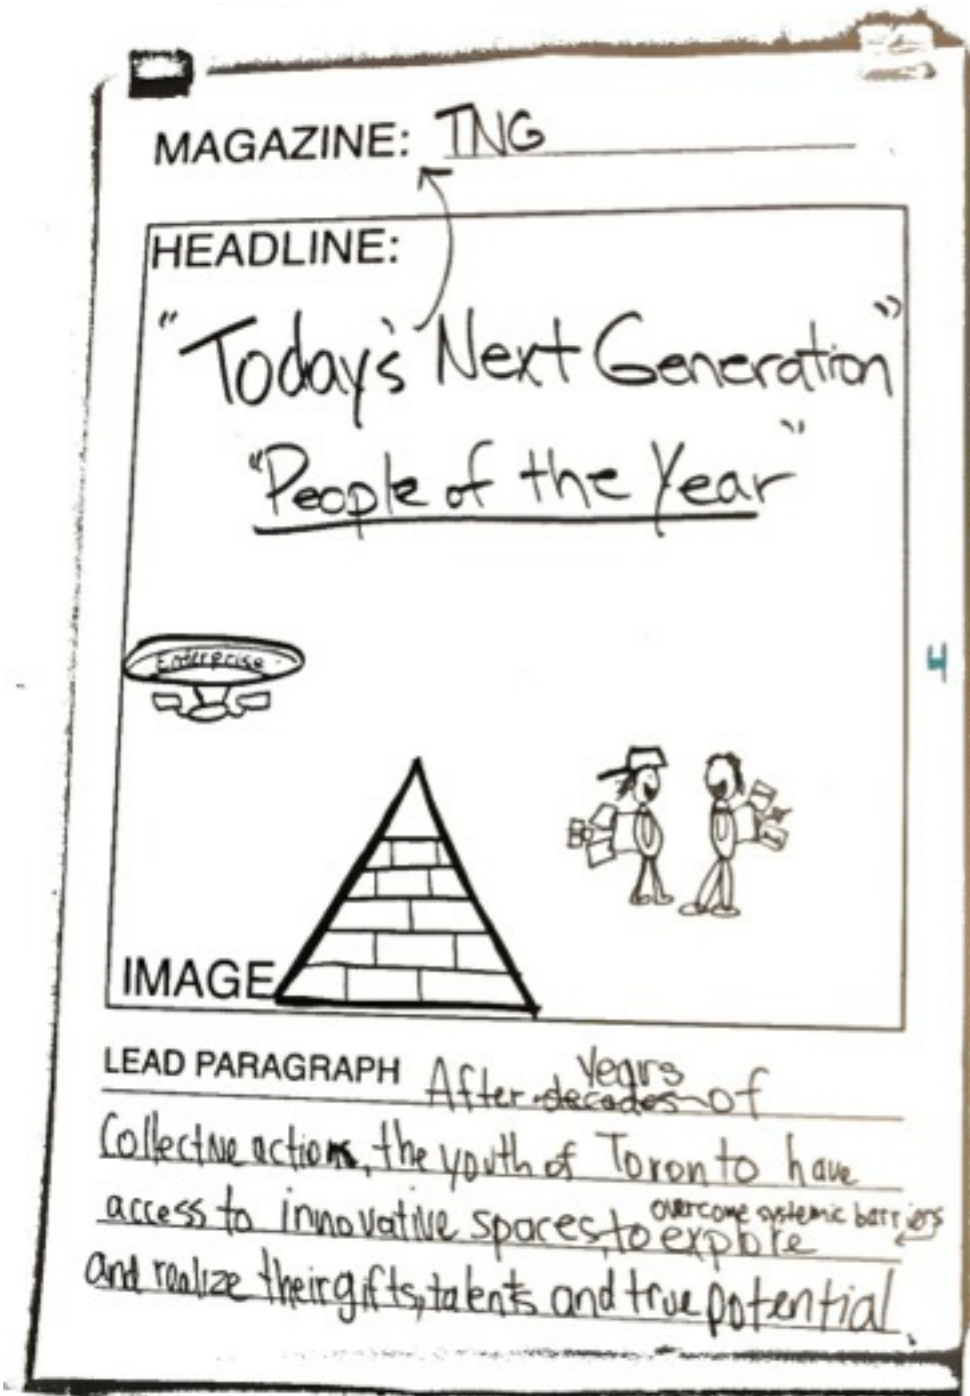 MAGAZINE: TNG
HEADLINE:
"Today's Next Generation"
"People of the Year"
Enterprise
IMAGE
LEAD PARAGRAPH After decades years of
Collective action, the youth of Toronto have
access to innovative spaces, to overcome systemic barriers explore
and realize their gifts, talents and true potential.